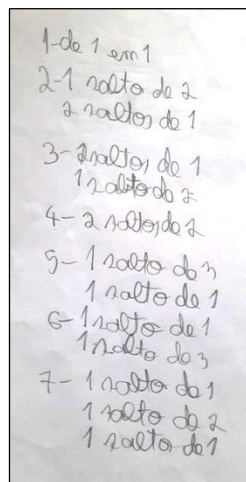 1-de 1 em 1
2-1 salto de 2
2 saltos de 1
3-2 saltos de 1
1 salto de 2
4-2 saltos de 2
5-1 salto de 3
1 salto de 1
6-1 salto de 1
1 salto de 3
7-1 salto de 1
1 salto de 2
1 salto de 1